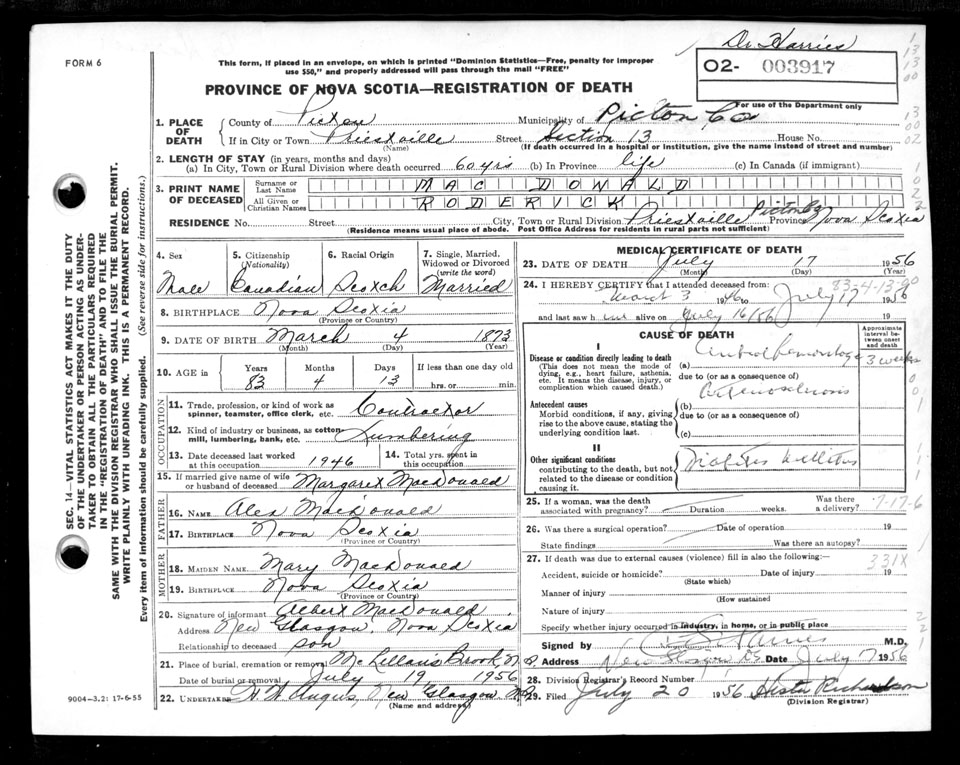 Dr. Harries
FORM 6
This form, if placed in an envelope, on which is printed "Dominion Statistics—Free, penalty for improper
use $50," and properly addressed will pass through the mail "FREE"
02- 003917
For use of the Department only
PROVINCE OF NOVA SCOTIA—REGISTRATION OF DEATH
1. PLACE OF DEATH
County of Pictou Municipality of Picton Co
If in City or Town Priestville Street Section 13 House No.
(Name) (If death occurred in a hospital or institution, give the name instead of street and number)
2. LENGTH OF STAY (in years, months and days)
(a) In City, Town or Rural Division where death occurred 60 yrs (b) In Province life (c) In Canada (if immigrant)
3. PRINT NAME OF DECEASED
Surname or Last Name MAC DONALD
All Given or Christian Names RODERICK
RESIDENCE No. Street City, Town or Rural Division Priestville Picton Co Province Nova Scotia
(Residence means usual place of abode. Post Office Address for residents in rural parts not sufficient)
4. Sex
Male
5. Citizenship
(Nationality)
Canadian
6. Racial Origin
Scotch
7. Single, Married, Widowed or Divorced
(write the word)
Married
8. BIRTHPLACE Nova Scotia
(Province or Country)
9. DATE OF BIRTH March 4 1873
(Month) (Day) (Year)
10. AGE in Years Months Days If less than one day old
83 4 13 hrs. or min.
OCCUPATION
11. Trade, profession, or kind of work as
spinner, teamster, office clerk, etc. Contractor
12. Kind of industry or business, as cotton-
mill, lumbering, bank, etc. Lumbering
13. Date deceased last worked
at this occupation 1946
14. Total yrs. spent in
this occupation
15. If married give name of wife
or husband of deceased Margaret MacDonald
FATHER
16. NAME Alex MacDonald
17. BIRTHPLACE Nova Scotia
(Province or Country)
MOTHER
18. MAIDEN NAME Mary MacDonald
19. BIRTHPLACE Nova Scotia
(Province or Country)
20. Signature of informant Albert MacDonald
Address New Glasgow, Nova Scotia
Relationship to deceased son
21. Place of burial, cremation or removal McLellans Brook, N
Date of burial or removal July 19 1956
22. UNDERTAKER Angus, New Glasgow
(Name and address)
MEDICAL CERTIFICATE OF DEATH
23. DATE OF DEATH July 17 1956
(Month) (Day) (Year)
24. I HEREBY CERTIFY that I attended deceased from: 83-4-13-90
March 3 1946 to July 17 1956
and last saw him alive on July 16/56 19
CAUSE OF DEATH
Approximate interval between onset and death
I
Disease or condition directly leading to death
(This does not mean the mode of
dying, e.g., heart failure, asthenia,
etc. It means the disease, injury, or
complication which caused death.)
(a) hemorrhage 3 weeks
due to (or as a consequence of)
Antecedent causes
Morbid conditions, if any, giving
rise to the above cause, stating the
underlying condition last.
(b) Arteriosclerosis
due to (or as a consequence of)
(c)
II
Other significant conditions
contributing to the death, but not
related to the disease or condition
causing it.
Diabetes Mellitus
25. If a woman, was the death
associated with pregnancy? Duration weeks. Was there
a delivery? 7-17-6
26. Was there a surgical operation? Date of operation 19
State findings Was there an autopsy?
27. If death was due to external causes (violence) fill in also the following:— 331X
Accident, suicide or homicide? Date of injury 19
(State which)
Manner of injury
(How sustained
Nature of injury
Specify whether injury occurred in industry, in home, or in public place
Signed by Harries M.D.
Address New Glasgow NS Date July 17 1956
28. Division Registrar's Record Number
29. Filed July 20 1956 Hester Richardson
(Division Registrar)
SEC. 14—VITAL STATISTICS ACT MAKES IT THE DUTY
OF THE UNDERTAKER OR PERSON ACTING AS UNDER-
TAKER TO OBTAIN ALL THE PARTICULARS REQUIRED
IN THE "REGISTRATION OF DEATH" AND TO FILE THE
SAME WITH THE DIVISION REGISTRAR WHO SHALL ISSUE THE BURIAL PERMIT.
WRITE PLAINLY WITH UNFADING INK. THIS IS A PERMANENT RECORD.
Every item of information should be carefully supplied. (See reverse side for instructions.)
9004-3.2: 17-6-55